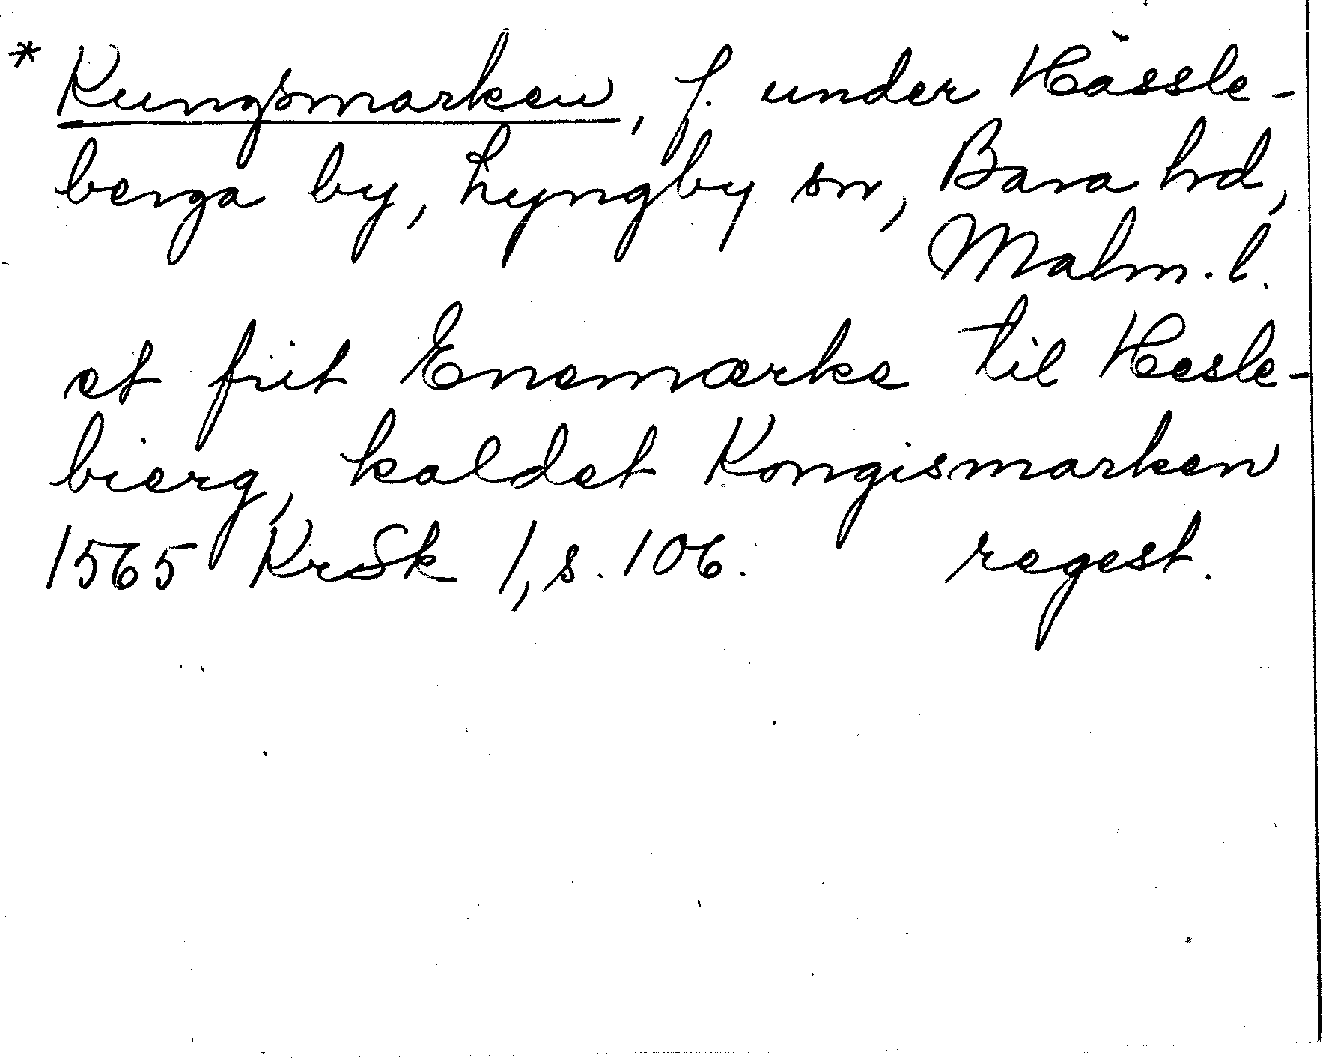 * Kungsmarken, f. under Hässle-
berga by, Lyngby sn, Bara hd,
Malm. l.
et friit Enemærke til Hesle-
bierg, kaldet Kongismarken
1565 KrSk 1, s. 106. regest.